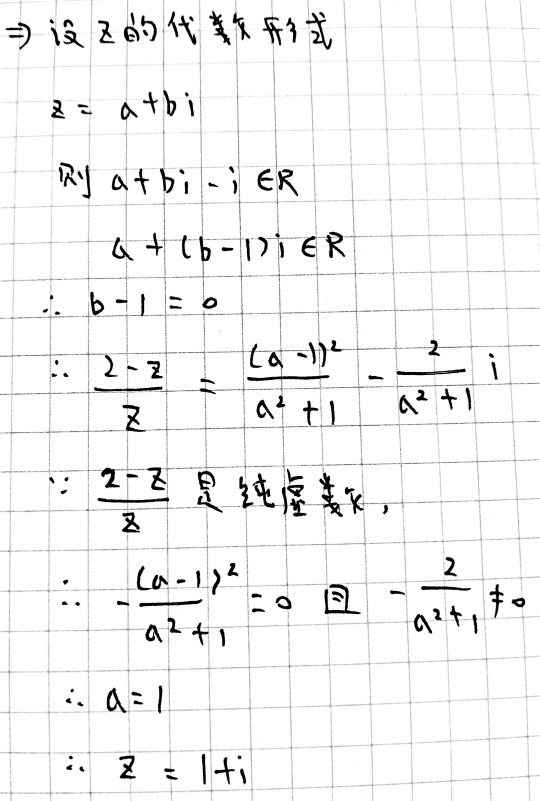 ⇒ 设z的代数形式
z = a+bi
则 a+bi-i∈R
a+(b-1)i∈R
∴ b-1=0
∴ (2-z)/z = (a-1)²/(a²+1) - 2/(a²+1) i
∵ (2-z)/z 是纯虚数,
∴ -(a-1)²/(a²+1) =0 且 -2/(a²+1) ≠0
∴ a=1
∴ z = 1+i